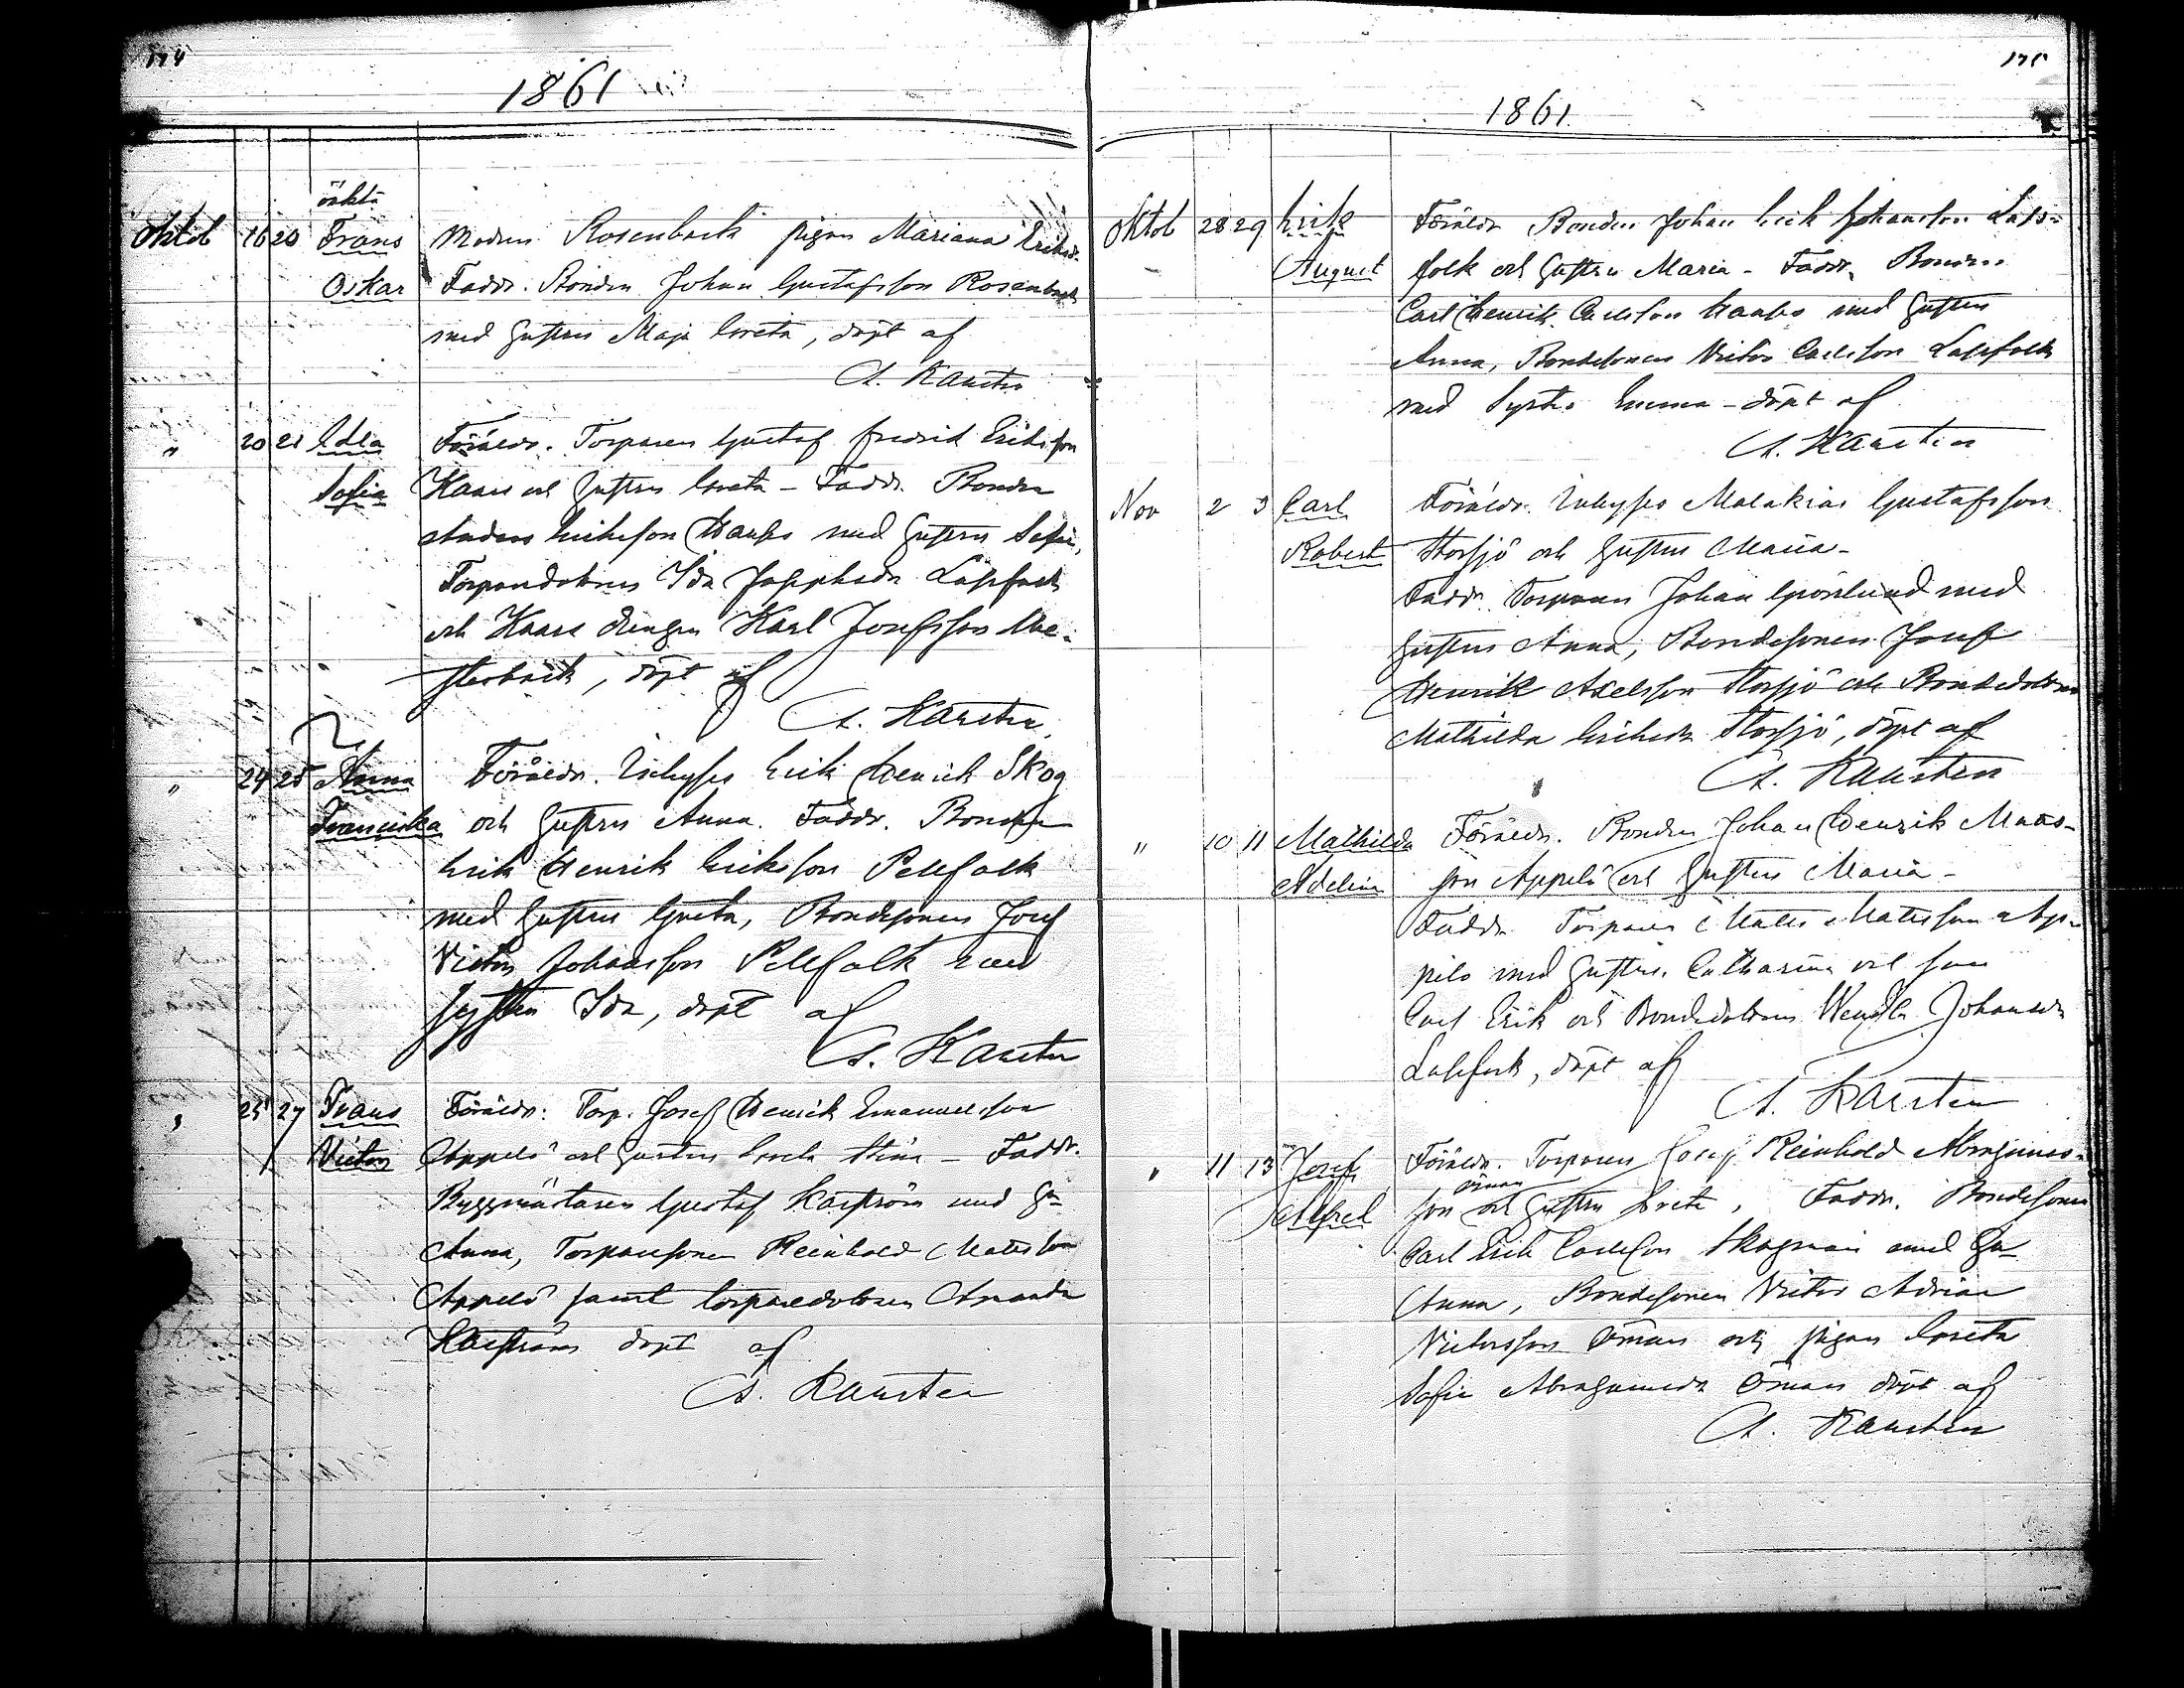 174
1861
oäkta
Oktob 16 20 Frans Modren Rosenback pigan Mariana Eriksdr
Oskar Faddr. Bonden Johan Gustafsson Rosenback
med hustrun Maja Greta, döpt af
A. Karsten
" 20 21 Edla Föräldr. Torparen Gustaf Fredrik Eriksson
Sofia Kaars och hustrun Greta - Faddr. Bonden
Anders Erikson Haaks med hustrun Sofia,
Torparedottren Ida Josephsdr Lappfolk
och Kaars drengen Karl Josefsson We-
sterback, döpt af
A. Karsten
" 24 25 Anna Föräldr. Inhyses Erik Henrik Skog
Franciska och hustrun Anna. Faddr. Bonden
Erik Henrik Eriksson Pellfolk
med hustrun Greta, Bondesonen Josef
Victor Johansson Pellfolk med
systren Ida, döpt af
A. Karsten
" 25 27 Frans Föräldr: Torp. Josef Henrik Emanuelsson
Victor Appelö och hustrun Greta Stina - Faddr.
Byggmästaren Gustaf Karström med hu
Anna, Torparesonen Reinhold Matsson
Appelö samt torparedottren Amanda
Karström döpt af
A. Karsten
175
1861
Oktob 28 29 Erik Föräldr Bonden Johan Erik Johansson Lapp-
August folk och hustrun Maria - Faddr. Bonden
Carl Henrik Carlsson Haaks med hustrun
Anna, Bondesonen Victor Carlsson Lappfolk
med Syster Emma - döpt af
A. Karsten
Nov 2 3 Carl Föräldr. Inhyses Malakias Gustafsson
Robert Storsjö och hustrun Maria -
Faddr. Torparen Johan Grönlund med
hustrun Anna, Bondesonen Josef
Henrik Axelsson Storsjö och Bondedottren
Mathilda Eriksdr Storsjö, döpt af
A. Karsten
" 10 11 Mathilda Föräldr. Bonden Johan Henrik Mats-
Adelina son Appelö och hustrun Maria -
Faddr. Torparen Matts Matsson Ap-
pelö med hustrun Catharina och son
Carl Erik och Bondedottren Wendla Johansdr
Lappfolk, döpt af
A. Karsten
" 11 13 Josef Föräldr. Torparen Josef Reinhold Abrahams-
Öman
Alfred son och hustrun Greta, Faddr. Bondesonen
Carl Erik Carlsson Skogman med hu
Anna, Bondesonen Victor Adrian
Victorsson Öman och pigan Greta
Sofia Abrahamsdr Öman döpt af
A. Karsten